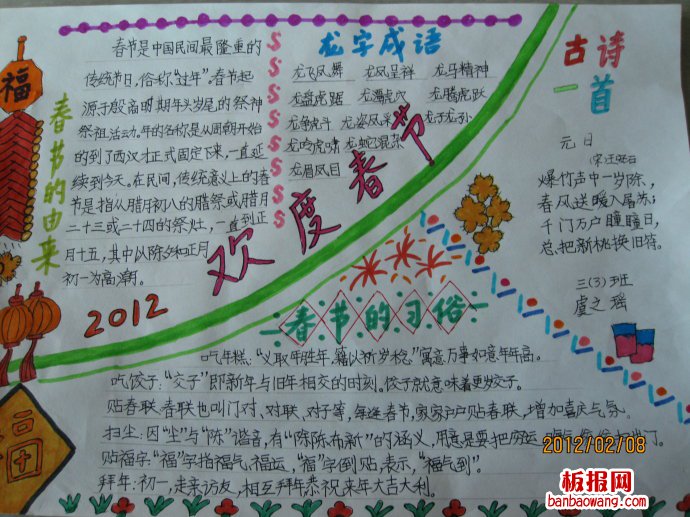 福
春节的由来
春节是中国民间最隆重的
传统节日，俗称"过年"。春节起
源于殷商时期年头岁尾的祭神
祭祖活动。年的名称是从周朝开始
的到了西汉才正式固定下来，一直延
续到今天。在民间，传统意义上的春
节是指从腊月初八的腊祭或腊月
二十三或二十四的祭灶，一直到正
月十五，其中以除夕和正月
初一为高潮。
2012
欢度春节
龙字成语
龙飞凤舞 龙凤呈祥 龙马精神
龙盘虎踞 龙潭虎穴 龙腾虎跃
龙争虎斗 龙姿凤采 龙子龙孙
龙吟虎啸 龙蛇混杂
龙眉凤目
古诗
一首
元日
(宋)王安石
爆竹声中一岁除，
春风送暖入屠苏；
千门万户瞳瞳日，
总把新桃换旧符。
三(3)班
虞之瑶
春节的习俗
吃年糕："义取年胜年，籍以祈岁稔"寓意万事如意年年高。
吃饺子："交子"即新年与旧年相交的时刻。饺子就意味着更岁交子。
贴春联：春联也叫门对、对联、对子等，每逢春节，家家户户贴春联，增加喜庆气氛。
扫尘：因"尘"与"陈"谐音，有"陈陈布新"的涵义，用意是要把
贴福字："福"字指福气，福运，"福"字倒贴，表示，"福气到"。
拜年：初一，走亲访友，相互拜年恭祝来年大吉大利。
福
2012/02/08
板报网
banbaowang.com